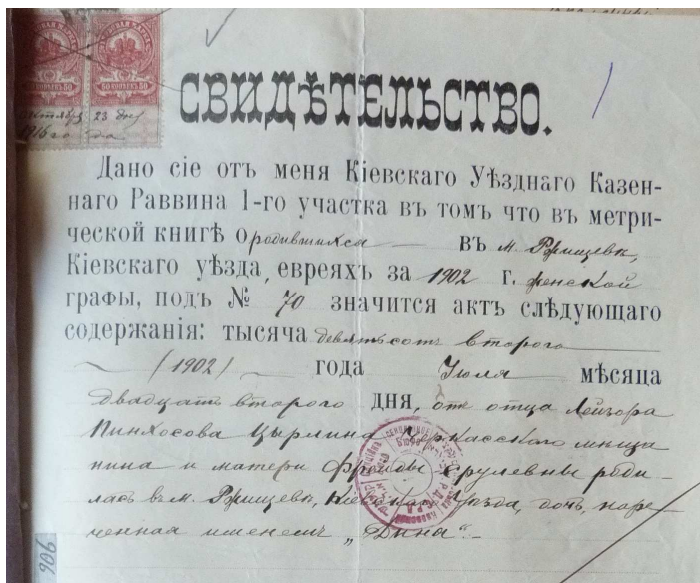 50 КОПѢЕКЪ 50 50 КОПѢЕКЪ 50
октября 23 дня
1916 го да
СВИДѢТЕЛЬСТВО.
Дано сіе отъ меня Кіевскаго Уѣзднаго Казен-
наго Раввина 1-го участка въ томъ что въ метри-
ческой книгѣ о родившихся въ м. Ржищевѣ,
Кіевскаго уѣзда, евреяхъ за 1902 г. женской
графы, подъ № 70 значится актъ слѣдующаго
содержанія: тысяча девятьсотъ второго
(1902) года Іюля мѣсяца
двадцать второго дня, отъ отца Лейзора
Пинхосова Цырлина Черкасского мѣща
нина и матери Фрейды Срулевны роди-
лась въ м. Ржищевѣ, Кіевскаго уѣзда, дочь, наре-
ченная именемъ „Дина".
906